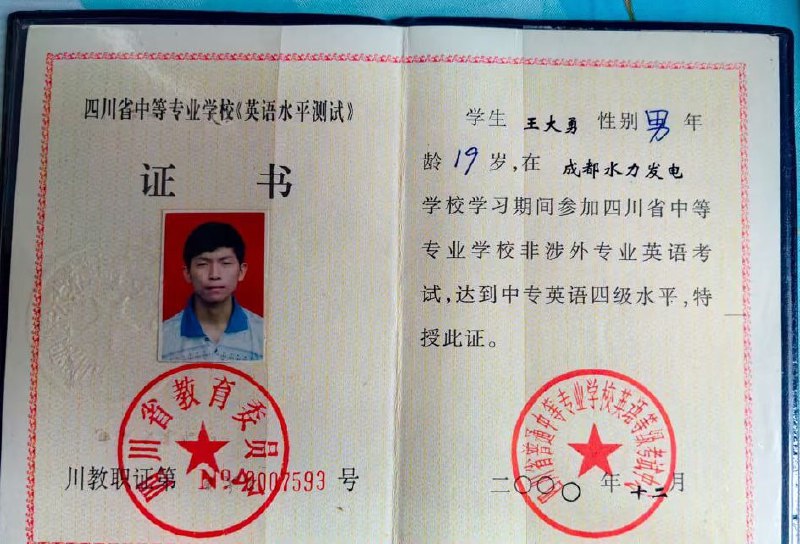 四川省中等专业学校《英语水平测试》
证 书
四川省教育委员会
川教职证第 0007593 号
学生 王大勇 性别 男 年
龄 19 岁,在 成都水力发电
学校学习期间参加四川省中等
专业学校非涉外专业英语考
试,达到中专英语四级水平,特
授此证。
四川省普通中等专业学校英语等级考试
二〇〇〇年十二月